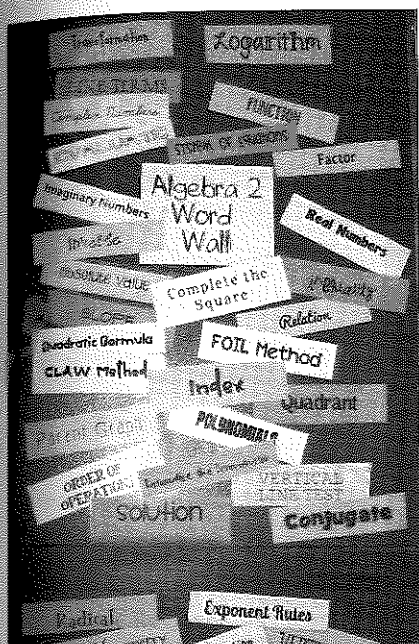 Transformation
Logarithm
LIKE TERMS
Complex Numbers
FUNCTION
SYSTEM OF EQUATIONS
Factor
Imaginary Numbers
Algebra 2
Word
Wall
Real Numbers
Absolute Value
Complete the
Square
SLOPE
Relation
Quadratic Formula
CLAW Method
FOIL Method
Index
Quadrant
POLYNOMIALS
ORDER OF
OPERATIONS
VERTICAL
LINE TEST
Solution
Conjugate
Radical
Exponent Rules